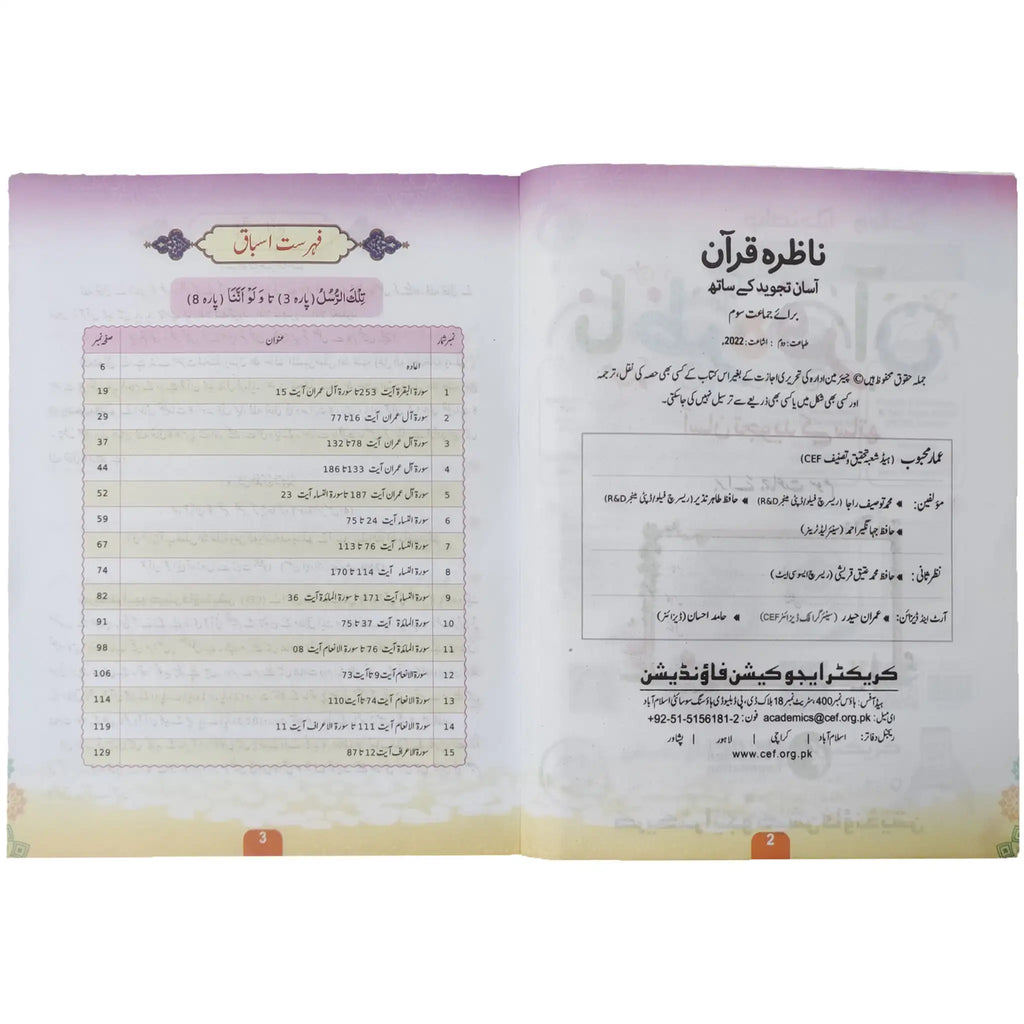 ناظرہ قرآن
آسان تجوید کے ساتھ
برائے جماعت سوم
طباعت: دوم : اشاعت: 2022ء
جملہ حقوق محفوظ ہیں © چیئرمین ادارہ کی تحریری اجازت کے بغیر اس کتاب کے کسی بھی حصہ کی نقل، ترجمہ
اور کسی بھی شکل میں یا کسی بھی ذریعے سے ترسیل نہیں کی جاسکتی۔
عمار محبوب (ہیڈ شعبہ تحقیق و تصنیف CEF)
مؤلفین: محمد توصیف راجا (ریسرچ فیلو/ڈپٹی منیجر R&D) حافظ طاہر نذیر (ریسرچ فیلو/ڈپٹی منیجر R&D)
حافظ جہانگیر احمد (سینئر لیڈ ٹرینر)
نظر ثانی: حافظ محمد عتیق قریشی (ریسرچ ایسوسی ایٹ)
آرٹ اینڈ ڈیزائن: عمران حیدر (سینئر گرافک ڈیزائنر CEF) حامد احسان (ڈیزائنر)
کریکٹر ایجوکیشن فاؤنڈیشن
ہیڈ آفس: ہاؤس نمبر 400، سٹریٹ نمبر 18 بلاک ڈی، پی ڈبلیو ڈی ہاؤسنگ سوسائٹی اسلام آباد
ای میل: academics@cef.org.pk فون: +92-51-5156181-2
ریجنل دفاتر: اسلام آباد | کراچی | لاہور | پشاور
www.cef.org.pk
2
فہرست اسباق
تِلْكَ الرُّسُلُ (پارہ 3) تا وَلَوْ اَنَّنَا (پارہ 8)
نمبر شمار عنوان صفحہ نمبر
اعادہ 6
1 سورۃ البقرۃ آیت 253 تا سورۃ آل عمران آیت 15 19
2 سورۃ آل عمران آیت 16 تا 77 29
3 سورۃ آل عمران آیت 78 تا 132 37
4 سورۃ آل عمران آیت 133 تا 186 44
5 سورۃ آل عمران آیت 187 تا سورۃ النساء آیت 23 52
6 سورۃ النساء آیت 24 تا 75 59
7 سورۃ النساء آیت 76 تا 113 67
8 سورۃ النساء آیت 114 تا 170 74
9 سورۃ النساء آیت 171 تا سورۃ المائدۃ آیت 36 82
10 سورۃ المائدۃ آیت 37 تا 75 91
11 سورۃ المائدۃ آیت 76 تا سورۃ الانعام آیت 08 98
12 سورۃ الانعام آیت 9 تا آیت 73 106
13 سورۃ الانعام آیت 74 تا آیت 110 114
14 سورۃ الانعام آیت 111 تا سورۃ الاعراف آیت 11 119
15 سورۃ الاعراف آیت 12 تا 87 129
3